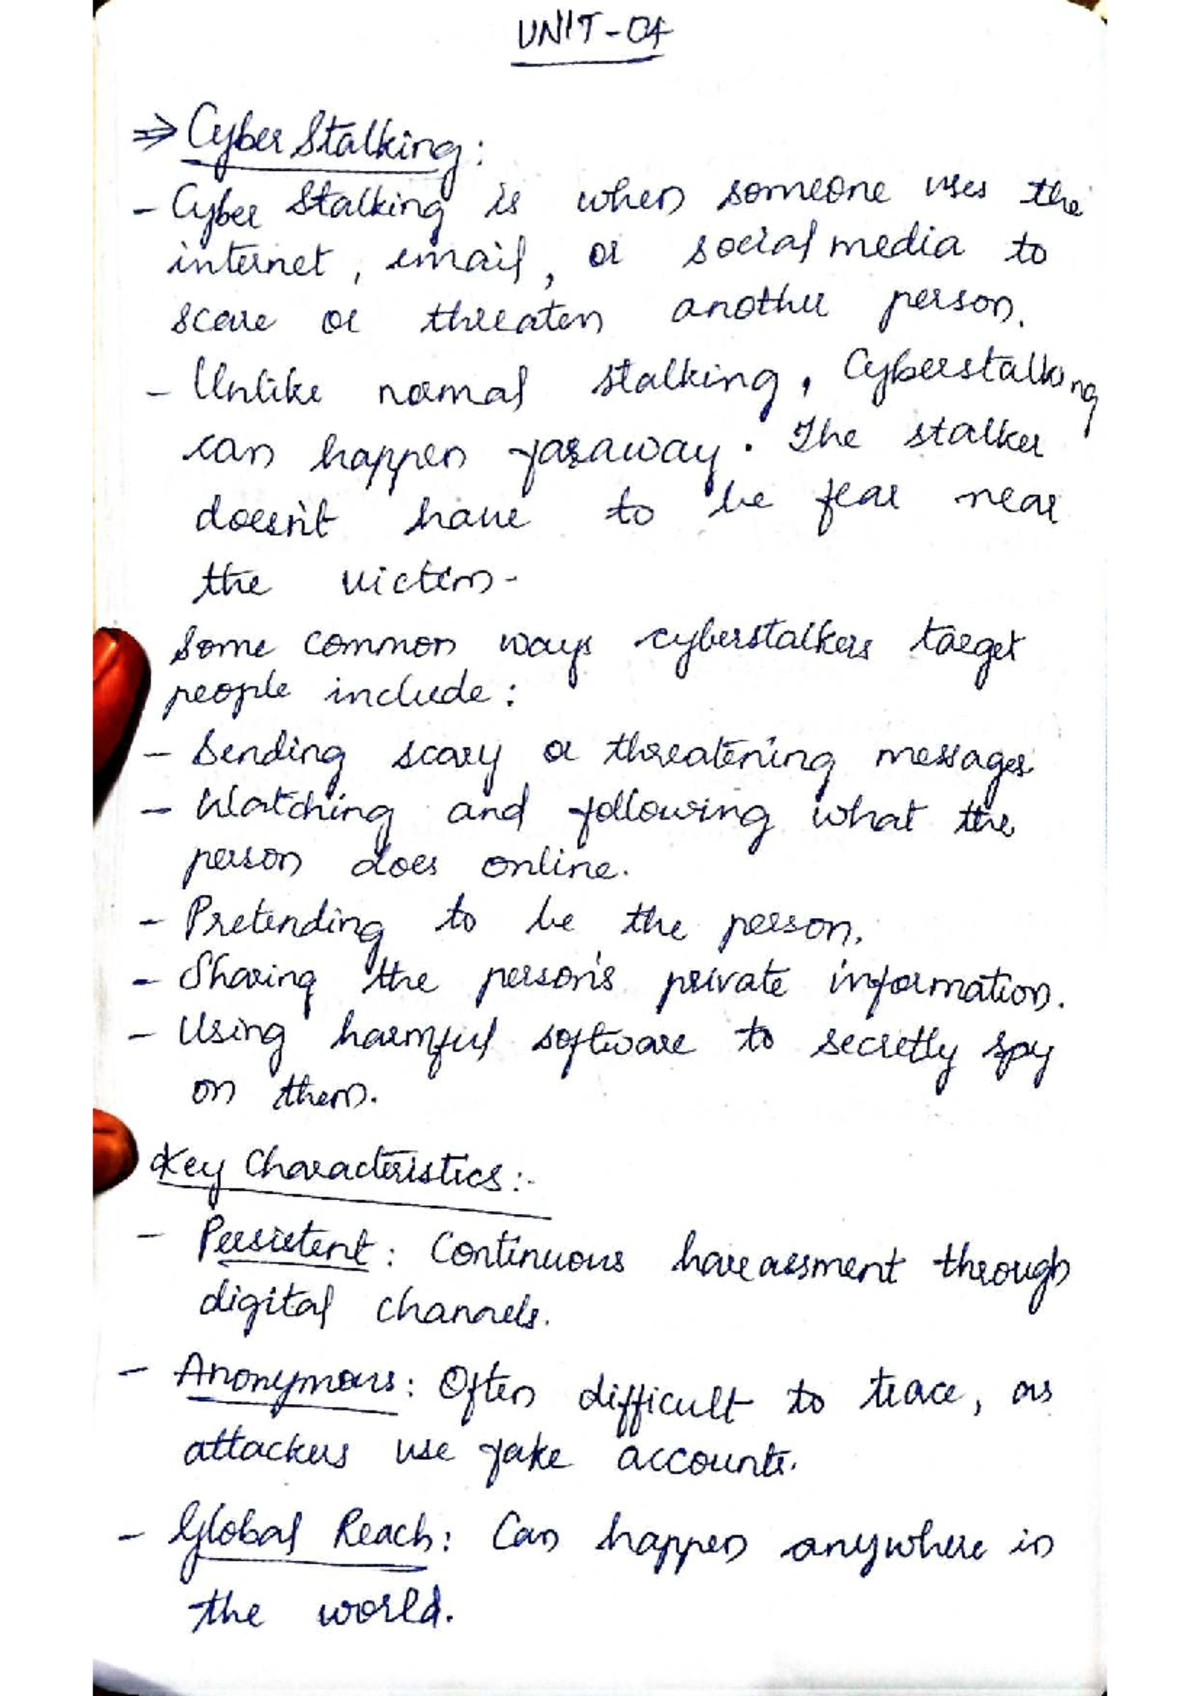 UNIT-04
⇒ Cyber Stalking:
- Cyber Stalking is when someone uses the
internet, email, or social media to
scare or threaten another person.
- Unlike normal stalking, Cyberstalking
can happen faraway. The stalker
doesn't have to be fear near
the victim.
Some common ways cyberstalkers target
people include:
- Sending scary or threatening messages
- Watching and following what the
person does online.
- Pretending to be the person.
- Sharing the person's private information.
- Using harmful software to secretly spy
on them.
Key Characteristics:-
- Persistent: Continuous harassment through
digital channels.
- Anonymous: Often difficult to trace, as
attackers use fake accounts.
- Global Reach: Can happen anywhere in
the world.